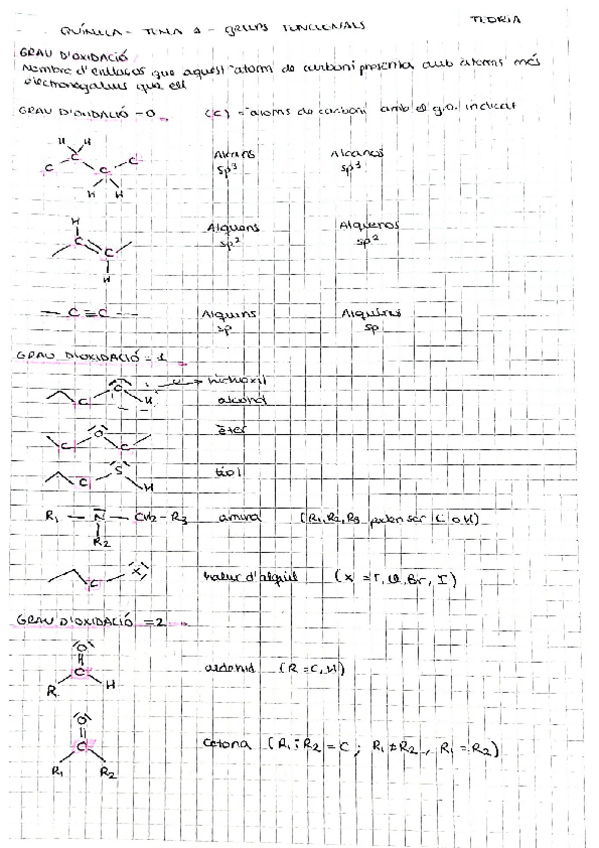 QUÍMICA - TEMA 1 - GRUPS FUNCIONALS
TEORIA
GRAU D'OXIDACIÓ
Nombre d'enllaços que aquest àtom de carboni presenta amb àtoms més
electronegatius que ell
GRAU D'OXIDACIÓ = 0 (C) = àtoms de carboni amb el g.o. indicat
H H
C C C C
H H
Alcans Alcanos
sp³ sp³
H
C C
H
Alquens Alquenos
sp² sp²
C ≡ C
Alquins Alquinos
sp sp
GRAU D'OXIDACIÓ = 1
C O H
hidroxil
alcohol
C O C
èter
C S H
tiol
R₁ — N — CH₂ - R₃ amina (R₁, R₂, R₃ poden ser C o H)
R₂
C X
halur d'alquil (X = F, Cl, Br, I)
GRAU D'OXIDACIÓ = 2
O
C
R H
aldehid (R = C, H)
O
C
R₁ R₂
cetona (R₁ i R₂ = C ; R₁ ≠ R₂, R₁ = R₂)